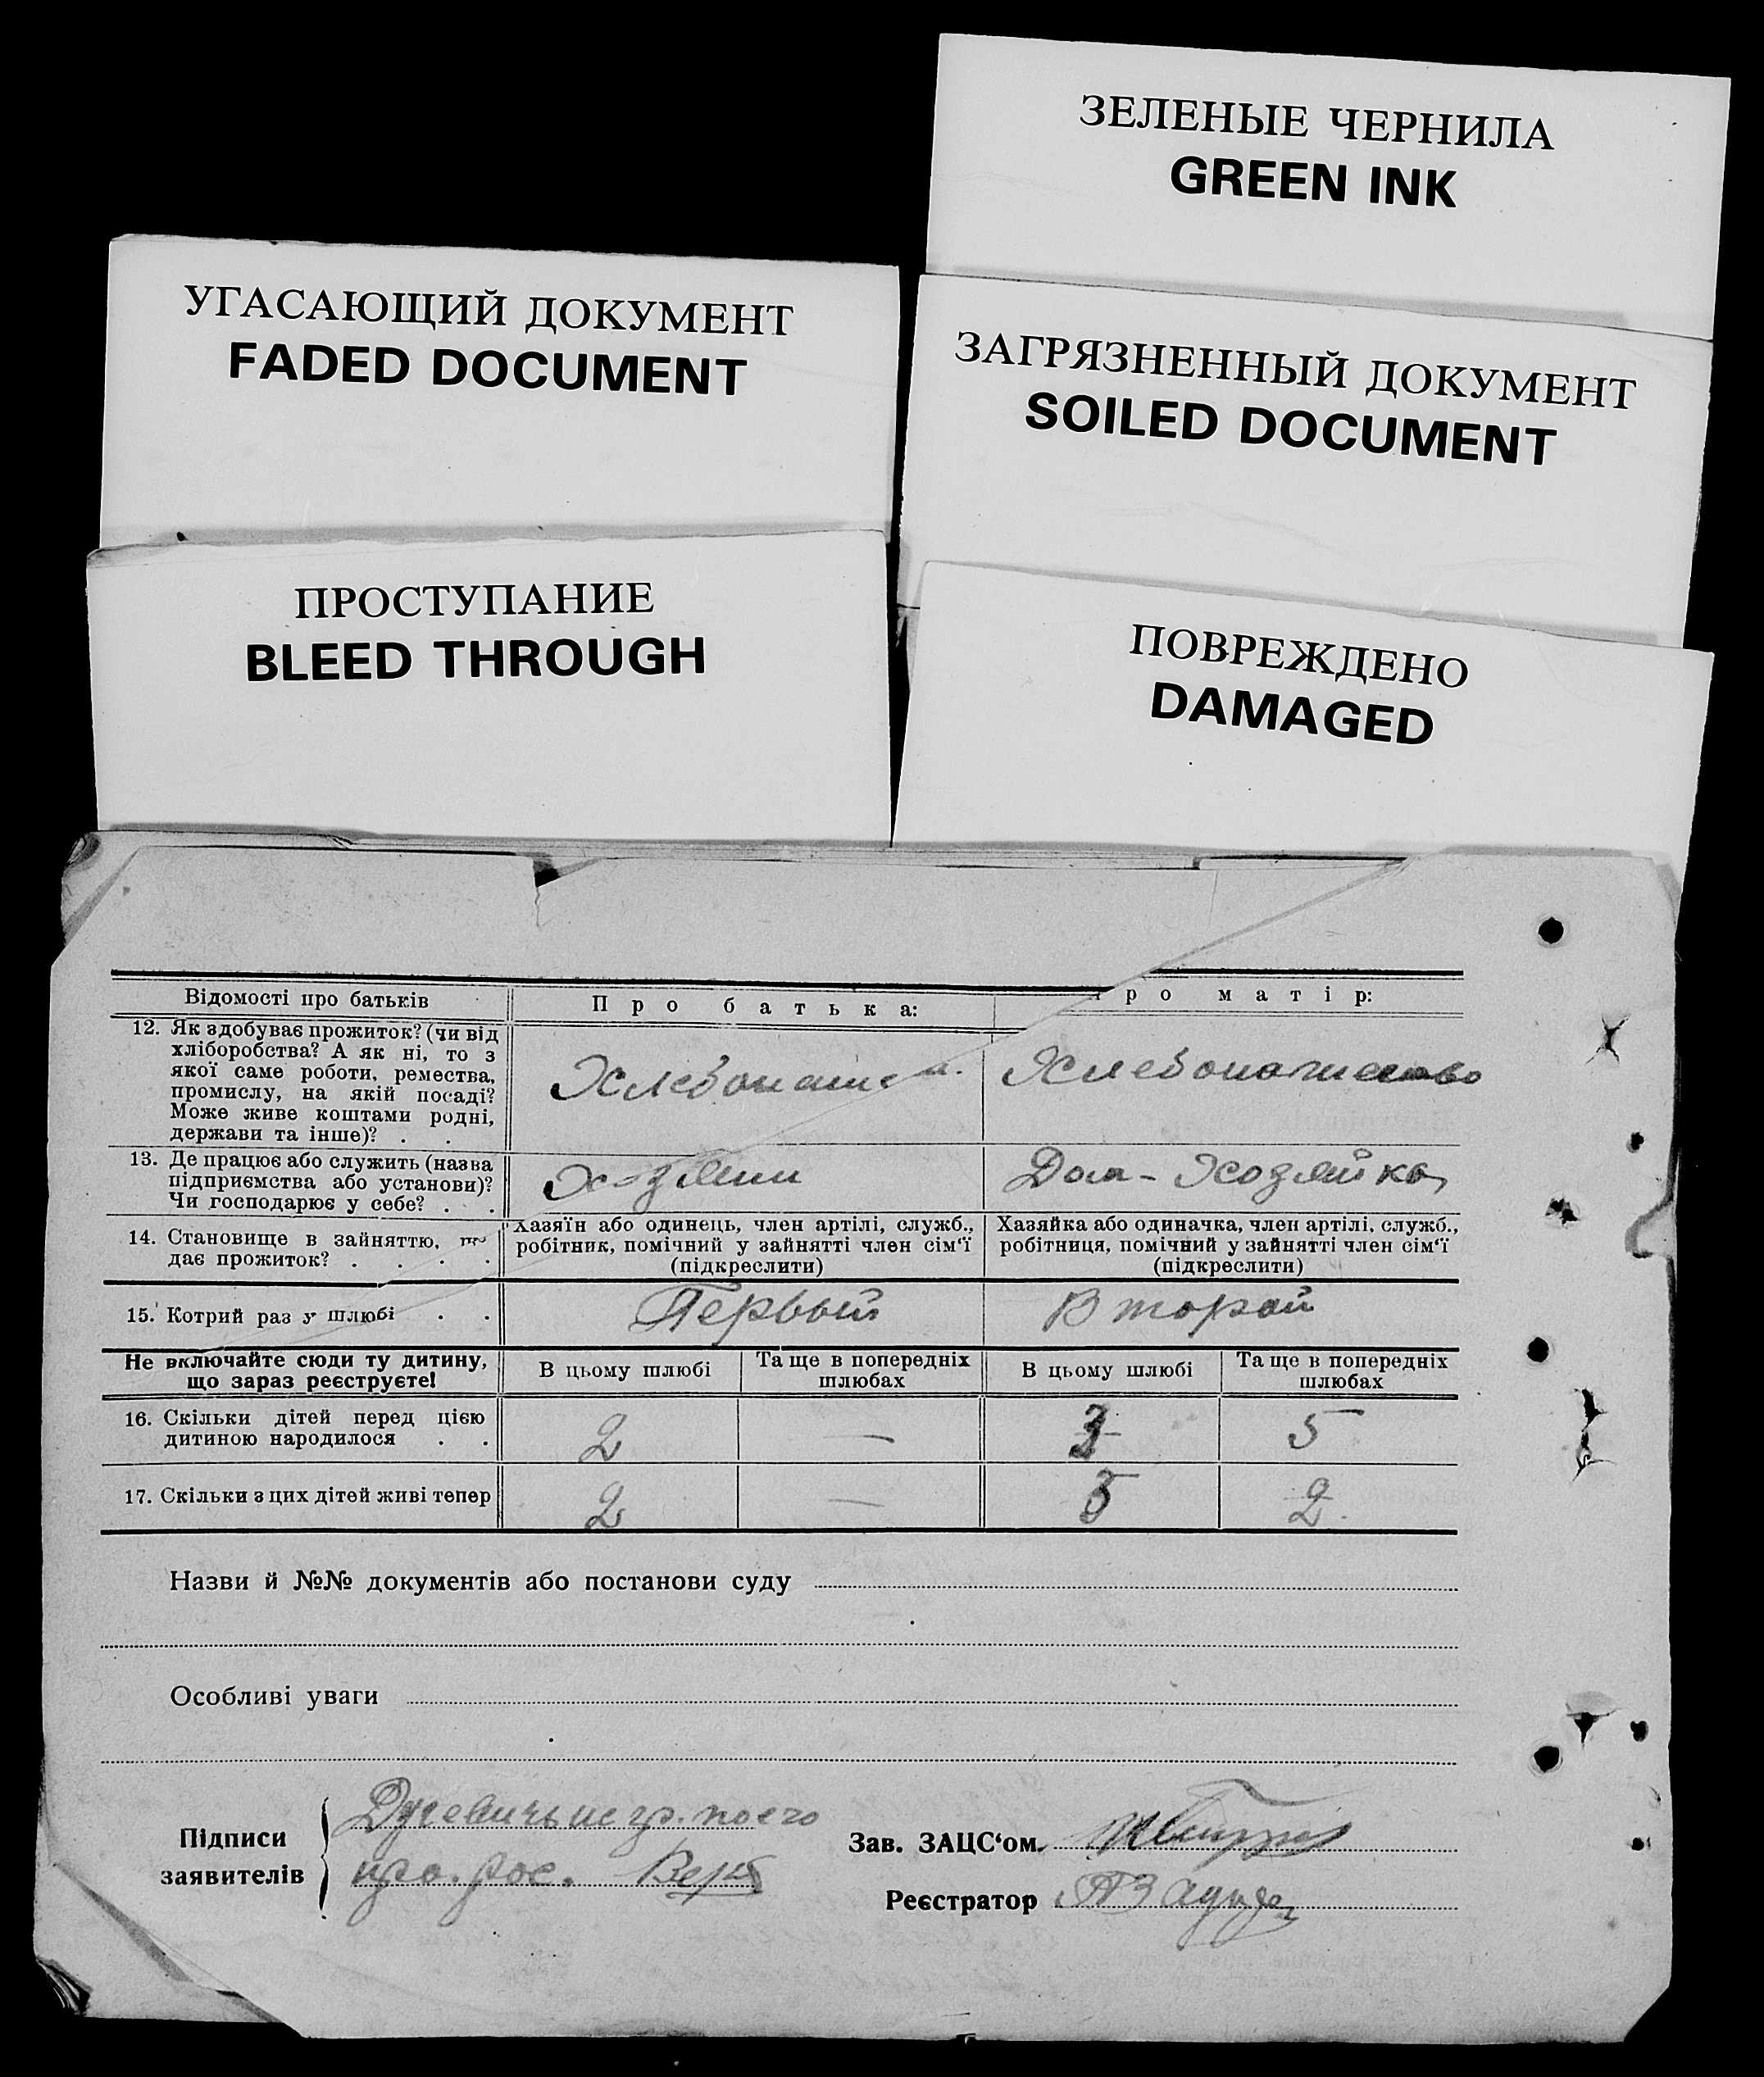 ЗЕЛЕНЫЕ ЧЕРНИЛА
GREEN INK
УГАСАЮЩИЙ ДОКУМЕНТ
FADED DOCUMENT
ЗАГРЯЗНЕННЫЙ ДОКУМЕНТ
SOILED DOCUMENT
ПРОСТУПАНИЕ
BLEED THROUGH
ПОВРЕЖДЕНО
DAMAGED
Відомості про батьків
Про батька:
ро матір:
12. Як здобуває прожиток? (чи від
хліборобства? А як ні, то з
якої саме роботи, ремества,
промислу, на якій посаді?
Може живе коштами родні,
держави та інше)? . .
Хлебопаше
Хлебопашество
13. Де працює або служить (назва
підприємства або установи)?
Чи господарює у себе? . .
Хозяин
Дом-Хозяйка
14. Становище в зайняттю,
дає прожиток? . . . .
Хазяїн або одинець, член артілі, служб.,
робітник, помічний у зайнятті член сім'ї
(підкреслити)
Хазяйка або одиначка, член артілі, служб.,
робітниця, помічний у зайнятті член сім'ї
(підкреслити)
15. Котрий раз у шлюбі . .
Первый
Второй
Не включайте сюди ту дитину,
що зараз реєструєте!
В цьому шлюбі
Та ще в попередніх
шлюбах
В цьому шлюбі
Та ще в попередніх
шлюбах
16. Скільки дітей перед цією
дитиною народилося . .
2 — 5
17. Скільки з цих дітей живі тепер
2 — 2
Назви й №№ документів або постанови суду
Особливі уваги
Підписи
заявителів
Зав. ЗАЦС'ом
Реєстратор